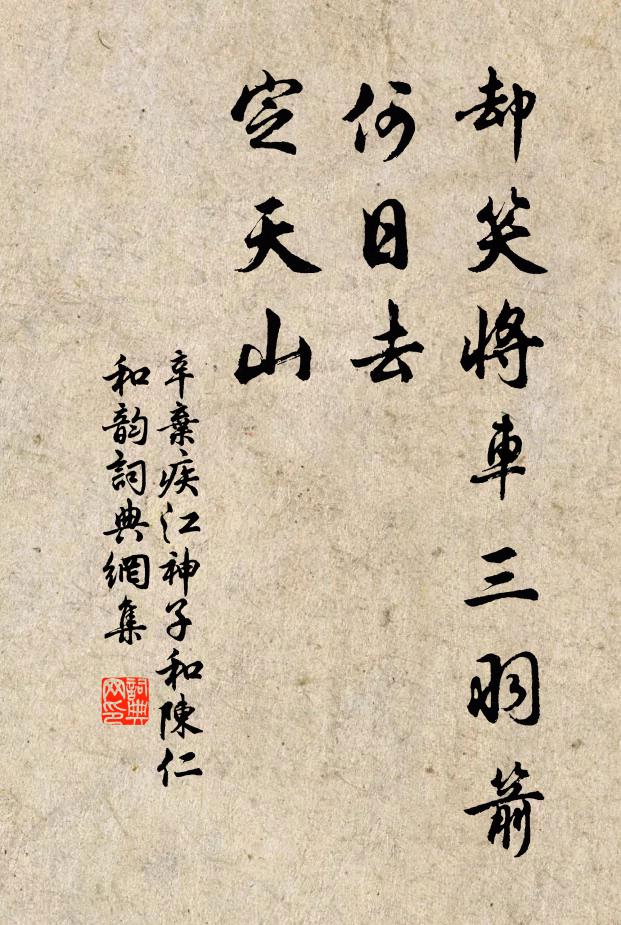 却笑將車三羽箭
何日去
定天山
辛棄疾江神子和陳仁
和韵詞典網集
詞典网印